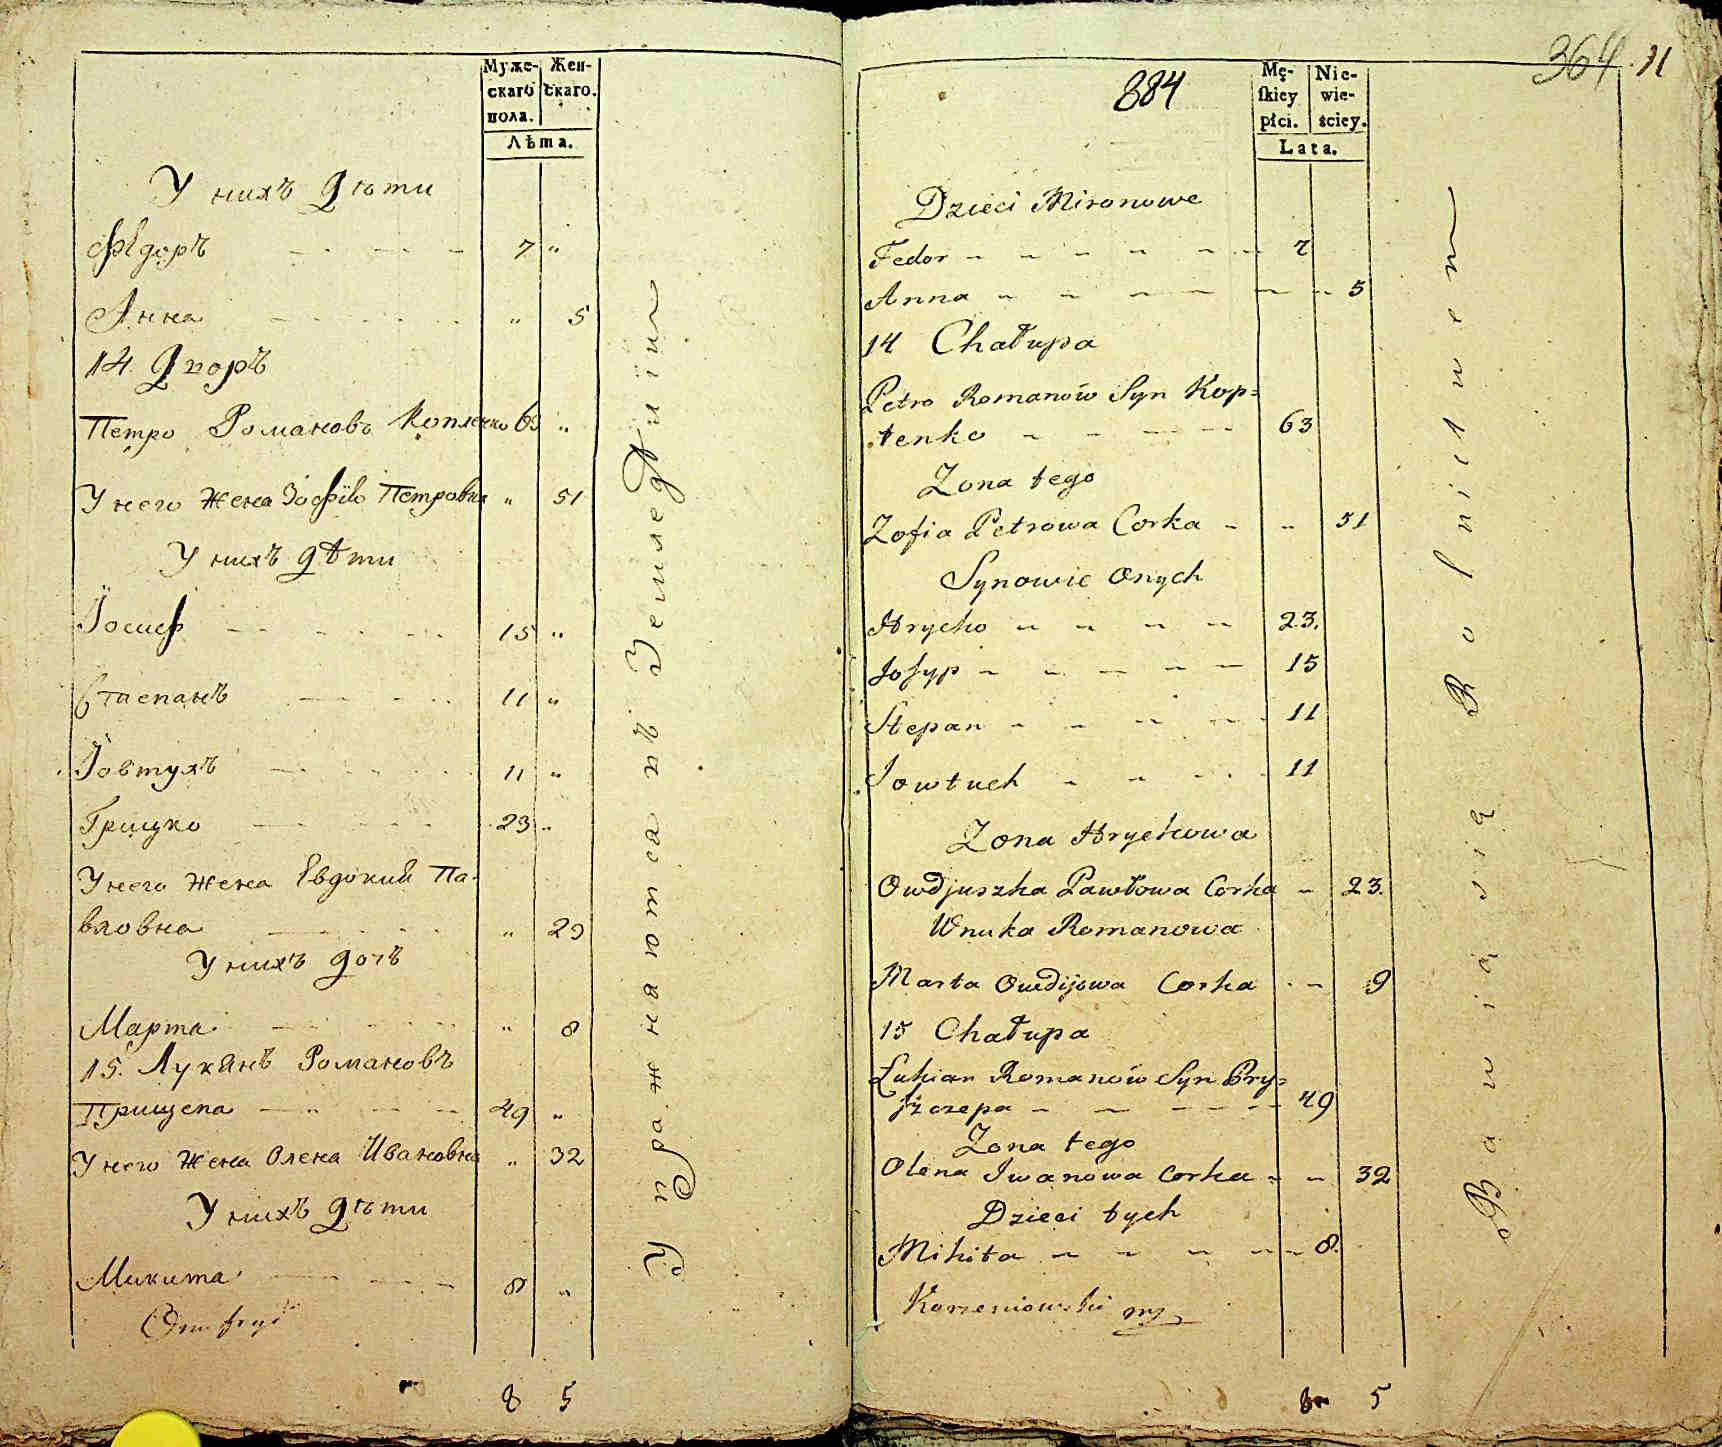 Муже-
скаго
пола.
Жен-
скаго.
Лѣта.
У нихъ дѣти
Ѳедоръ 7 "
Анна " 5
14. Дворъ
Петро Романовъ Коплѣнко 63 "
У него жена Зофія Петровна " 51
У нихъ дѣти
Іосиф 15 "
Стаепанъ 11 "
Іовтухъ 11 "
Грицко 23 "
У него жена Евдокий Па-
вловна " 23
У нихъ дочь
Марта " 8
15. Лукянъ Романовъ
Прищепа 49 "
У него жена Олена Ивановна " 32
У нихъ дѣти
Микита 8 "
8 5
Упражнаются въ Земледѣліи
364. 11
884
Mę-
skiey
płci.
Nie-
wie-
ściey.
Lata.
Dzieci Mironowe
Fedor 7
Anna 5
14 Chałupa
Petro Romanów Syn Kop=
tenko 63
Zona tego
Zofia Petrowa Corka 51
Synowie Onych
Hrycko 23.
Josyp 15
Stepan 11
Jowtuch 11
Zona Hryckowa
Owdjuszka Pawłowa Corka 23.
Wnuka Romanowa
Marta Owdijowa Corka 9
15 Chałupa
Łukian Romanów Syn Pry=
szczepa 49
Zona tego
Olena Iwanowa Corka 32
Dzieci tych
Mikita 8.
Korzeniowski mp
8 5
Bawią się Rolnictwem